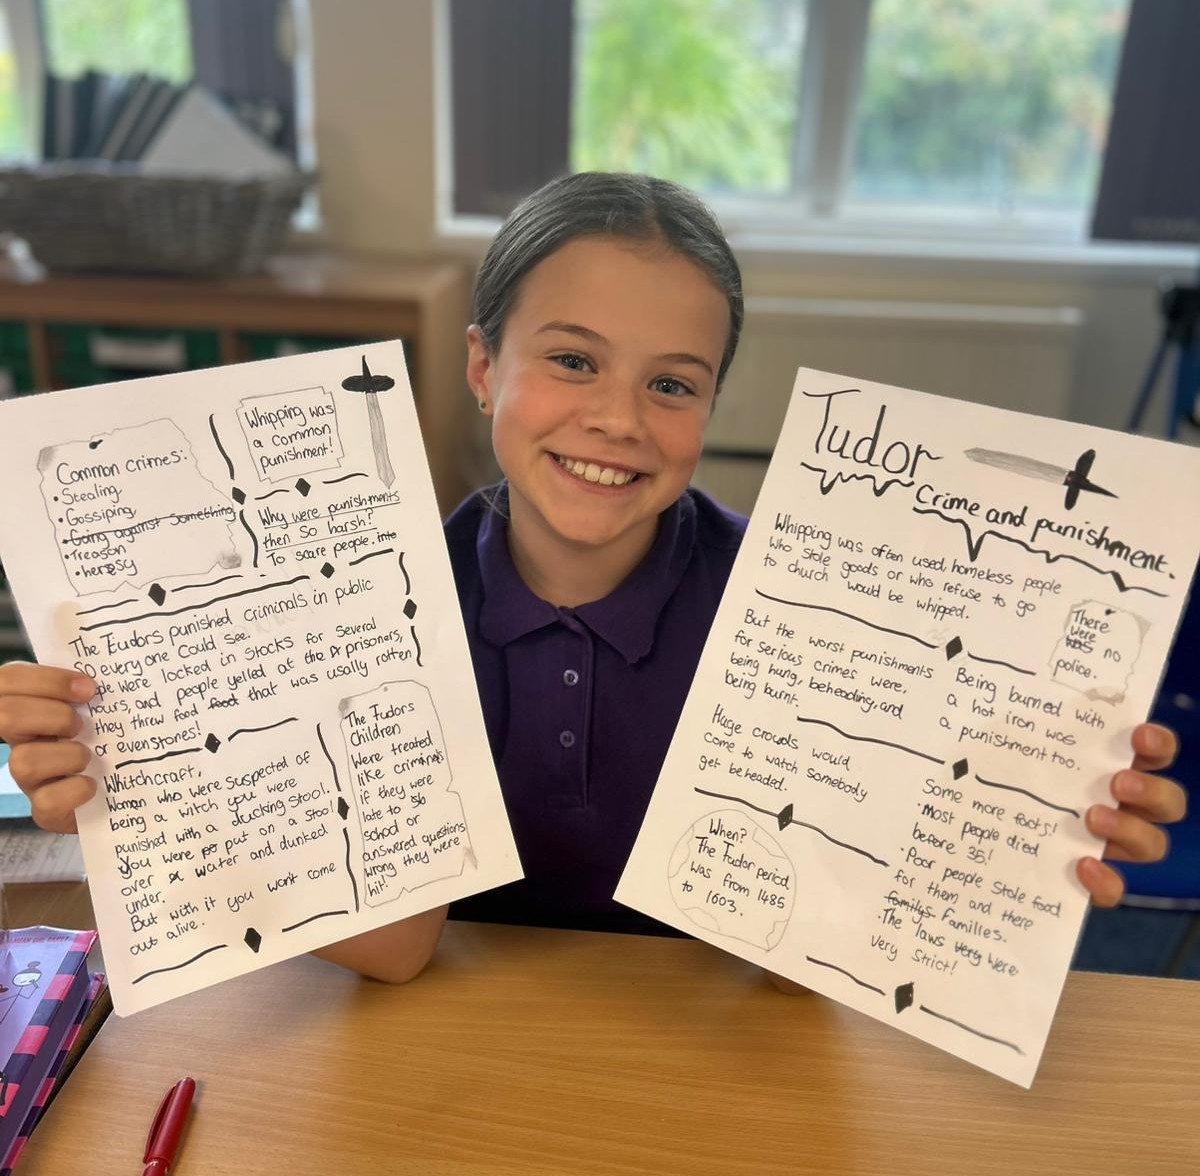 Common crimes:
• Stealing
• Gossiping
• Going against something
• Treason
• heresy
Whipping was
a common
punishment!
Why were punishments
then so harsh?
To scare people. into
The Tudors punished criminals in public
so everyone could see.
ple were locked in stocks for several
hours, and people yelled at the prisoners,
they threw food food that was usally rotten
or even stones!
Whitchcraft,
Woman who were suspected of
being a witch you were
punished with a ducking stool.
You were po put on a stool
over water and dunked
under.
But with it you won't come
out alive.
The Tudors
Children
Were treated
like criminals
if they were
late to
school or
answered questions
wrong they were
hit!
Tudor
Crime and punishment.
Whipping was often used, homeless people
who stole goods or who refuse to go
to church would be whipped.
There
were
was no
police.
But the worst punishments
for serious crimes were,
being hung, beheading, and
being burnt.
Being burned with
a hot iron was
a punishment too.
Huge crowds would
come to watch somebody
get beheaded.
When?
The Tudor period
was from 1485
to 1603.
Some more facts!
• Most people died
before 35!
• Poor people stole food
for them and there
familys families.
• The laws very were
very strict!